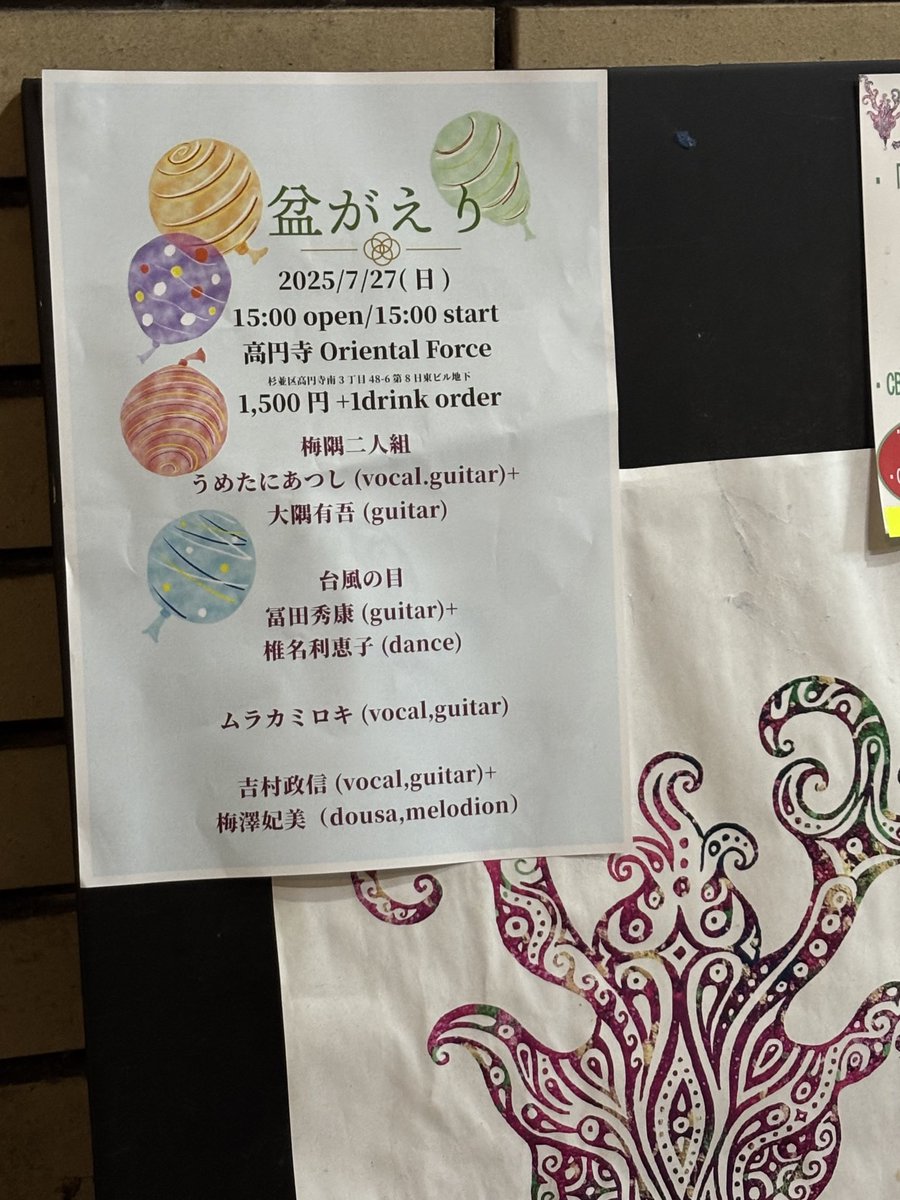 盆がえり
2025/7/27(日)
15:00 open/15:00 start
高円寺 Oriental Force
杉並区高円寺南3丁目48-6 第8日東ビル地下
1,500 円 +1drink order
梅隅二人組
うめたにあつし (vocal.guitar)+
大隅有吾 (guitar)
台風の目
冨田秀康 (guitar)+
椎名利恵子 (dance)
ムラカミロキ (vocal,guitar)
吉村政信 (vocal,guitar)+
梅澤妃美（dousa,melodion）
・CB